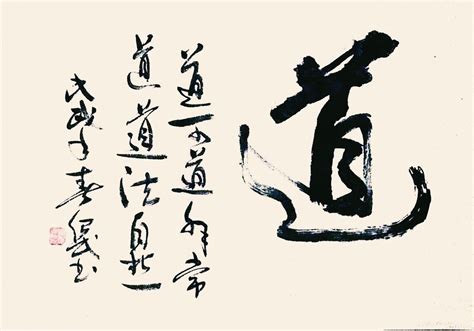 道
道可道非常
道道法自然
戊戌年春书